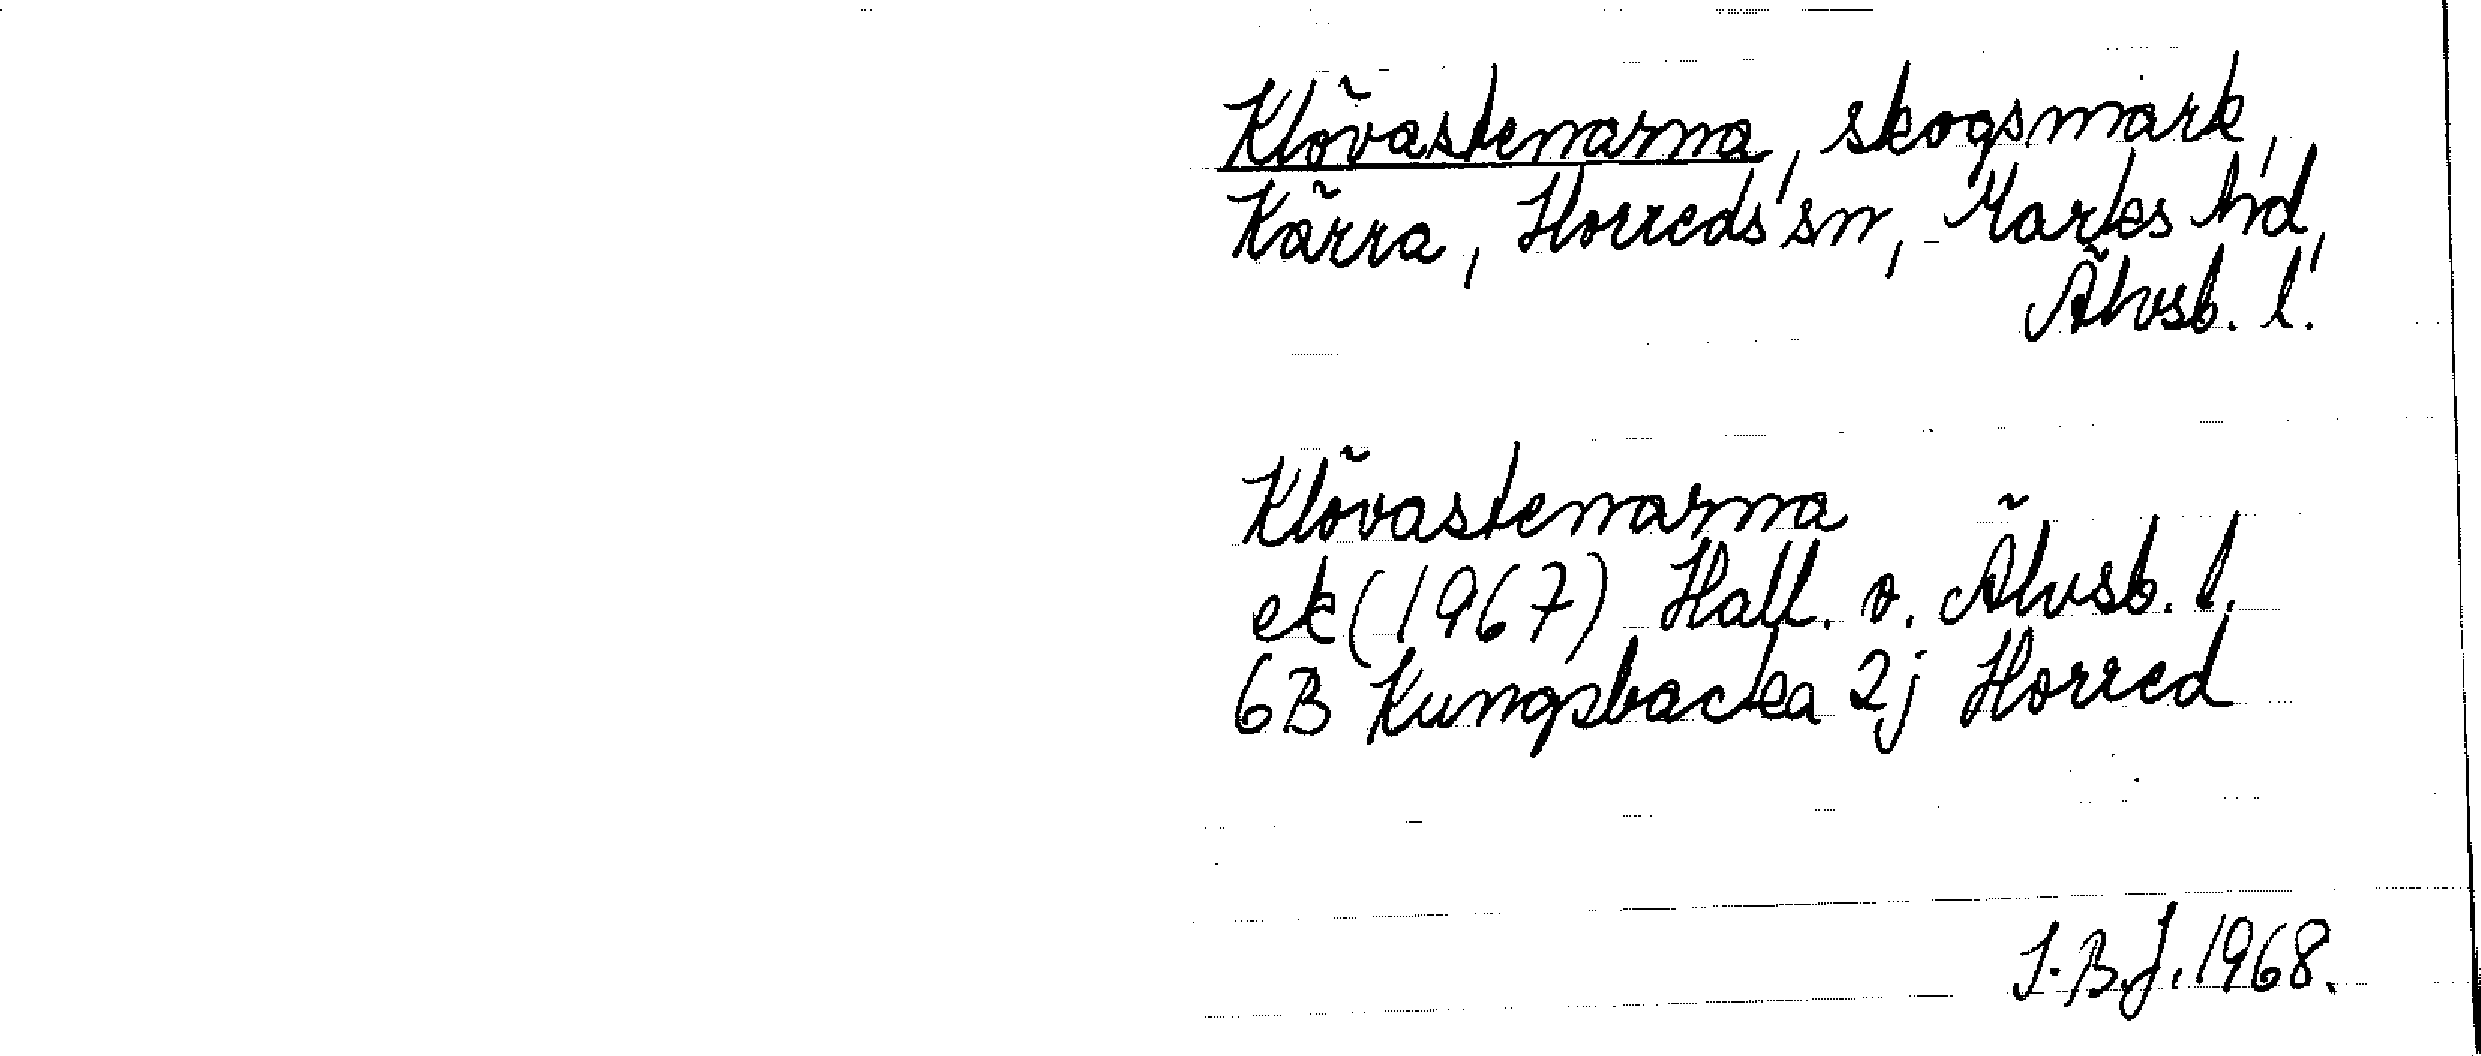 Klövastenarna, skogsmark,
Kärra, Horreds sn, Marks hd,
Älvsb. l.
Klövastenarna
ek (1967) Hall. o. Älvsb. l.
6B Kungsbacka 2j Horred
I.B.J. 1968.